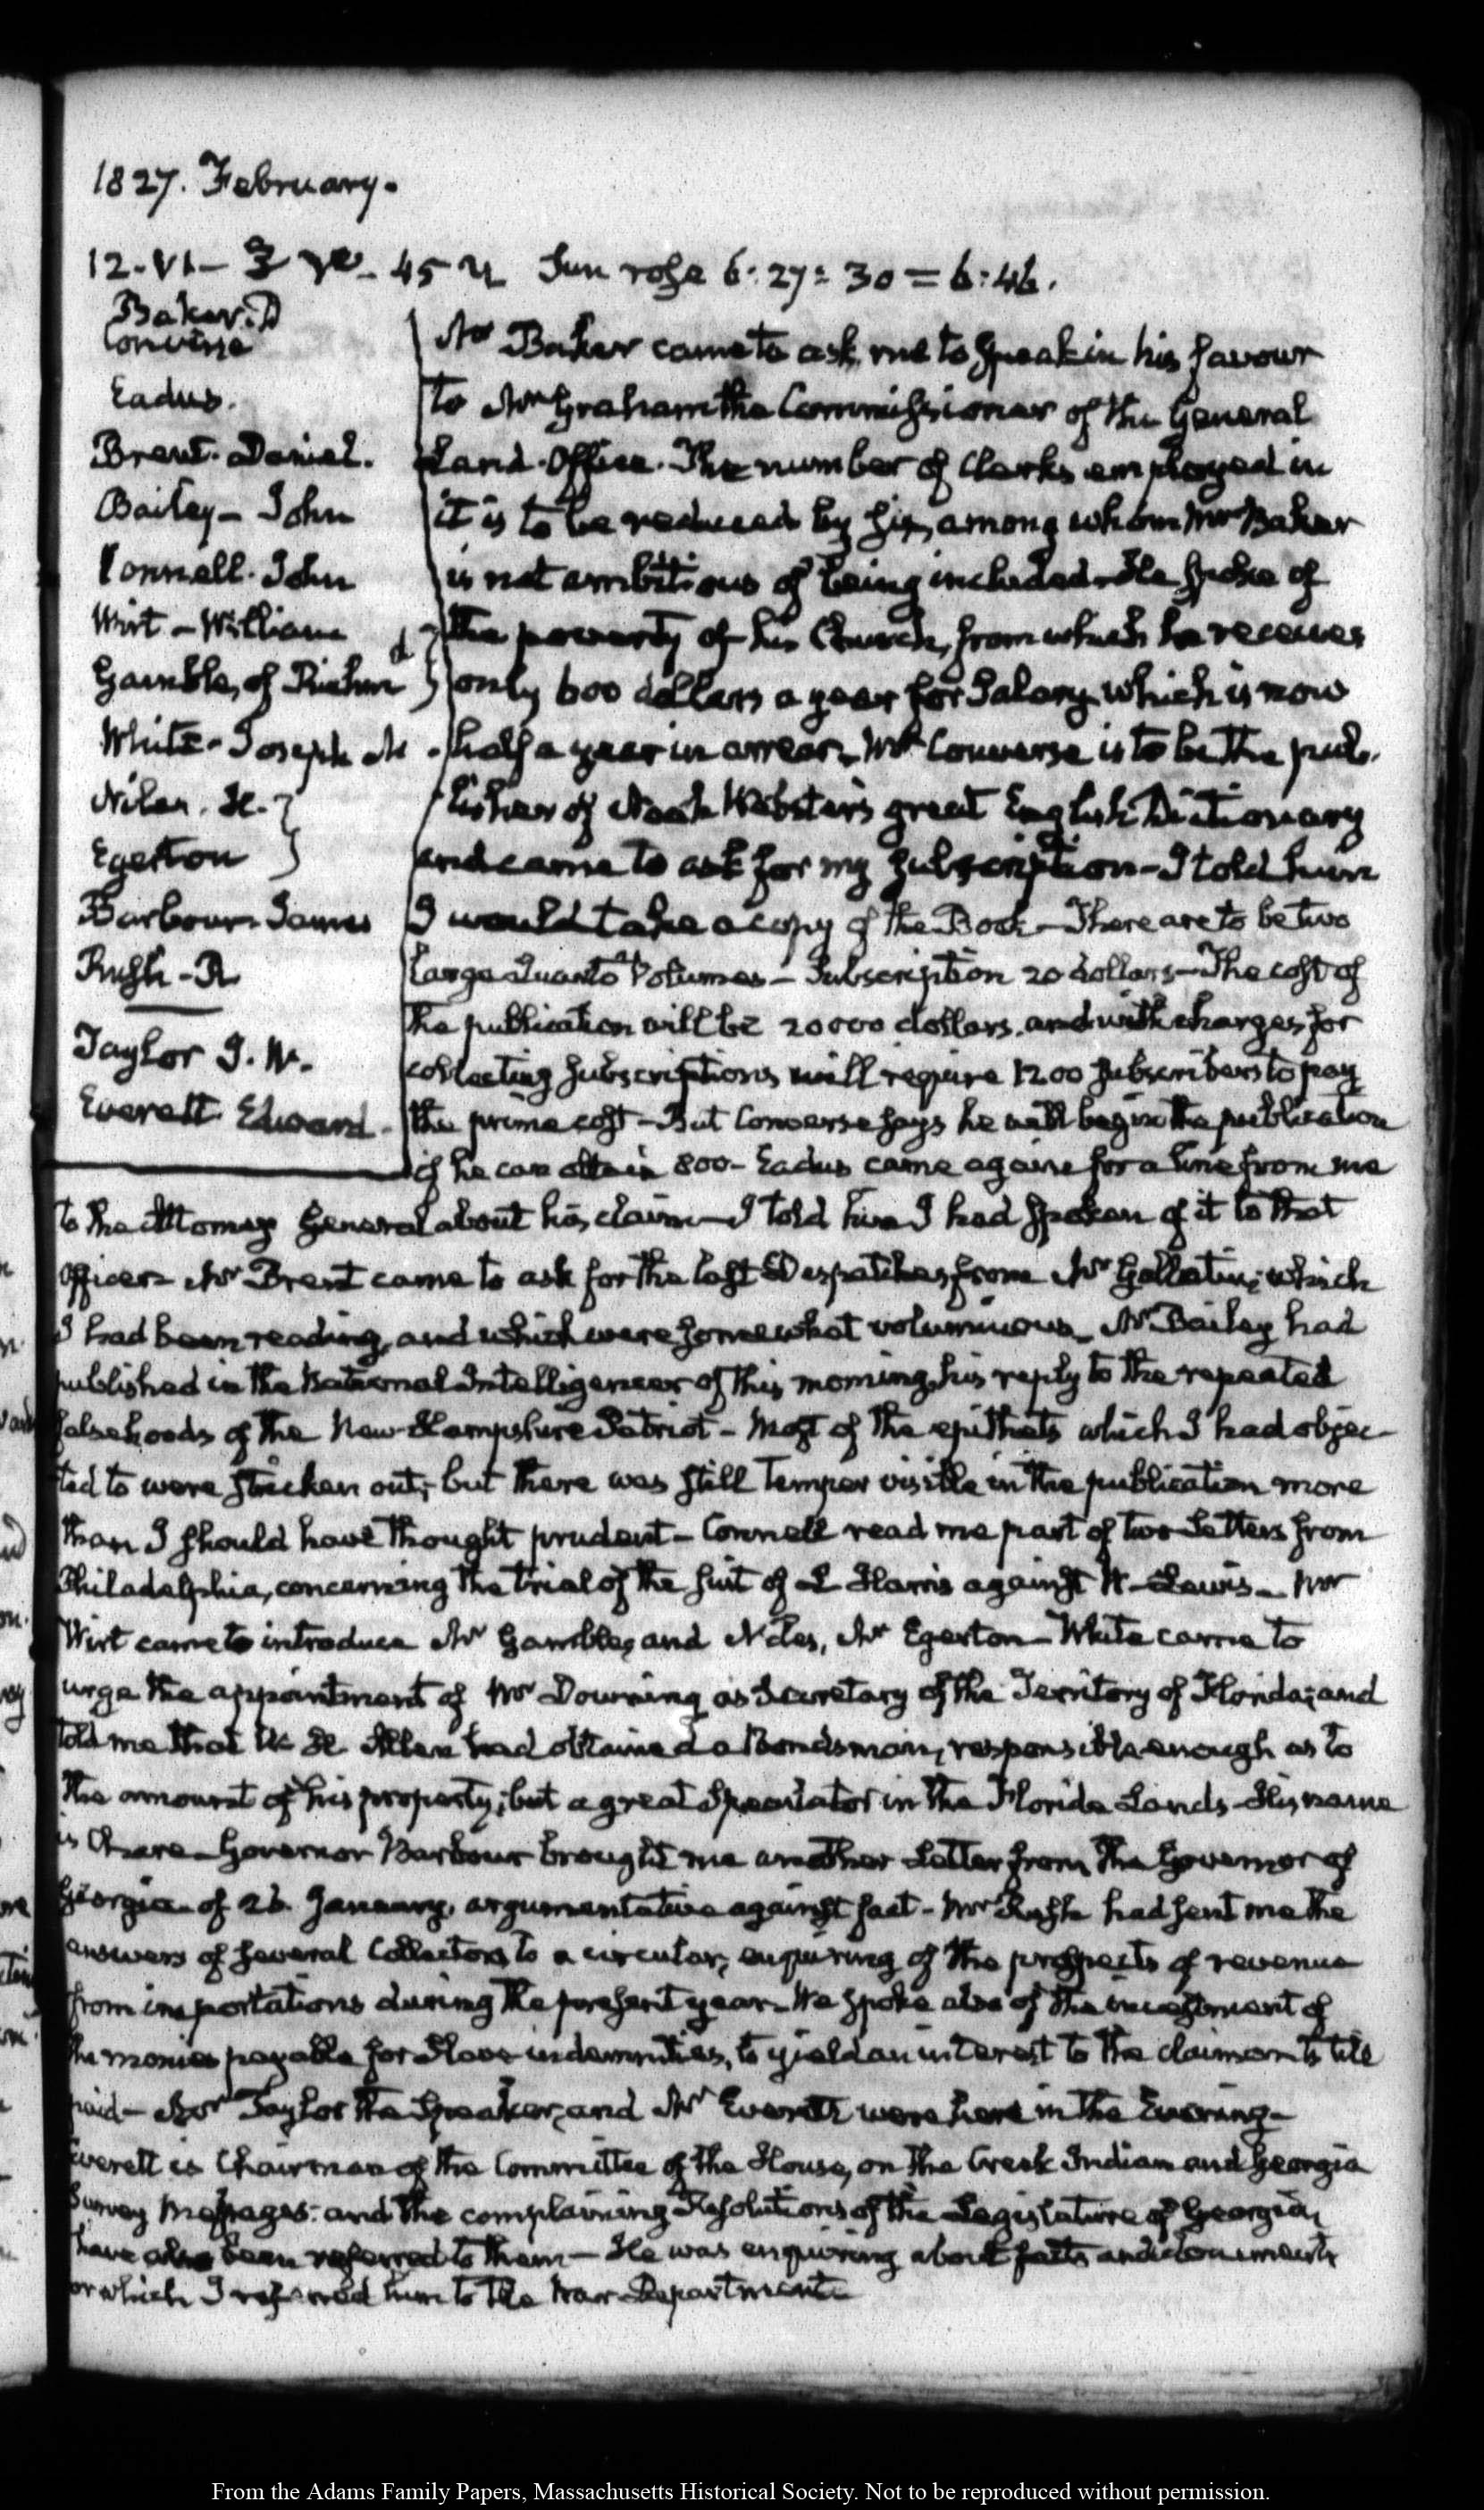 1827. February.
12. VI- 3 45 Sun rose 6:27:30 = 6:46.
Baker. D
Converse
Eadus.
Brent. Daniel.
Bailey - John
Connell. John
Wirt - William
Gamble, of Richmd
White - Joseph M
Niles. H.
Egerton
Barbour. James
Rush - R
Taylor J. W.
Everett. Edward.
Mr Baker came to ask me to speak in his favour
to Mr Graham the Commissioner of the General
Land-Office. The number of Clerks employed in
it is to be reduced by six, among whom Mr Baker
is not ambitious of being included. He spoke of
the poverty of his Church, from which he receives
only 600 dollars a year for Salary which is now
half a year in arrear. Mr Converse is to be the pub-
lisher of Noah Webster's great English Dictionary
and came to ask for my subscription - I told him
I would take a copy of the Book - There are to be two
large Quarto Volumes - Subscription 20 dollars - The cost of
the publication will be 20000 dollars, and with charges for
collecting subscriptions will require 1200 subscribers to pay
the prime cost - But Converse says he will begin the publication
if he can obtain 800 - Eadus came again for a line from me
to the Attorney General about his claim - I told him I had spoken of it to that
Officer - Mr Brent came to ask for the last Despatches from Mr Gallatin; which
I had been reading, and which were somewhat voluminous - Mr Bailey had
published in the National Intelligencer of this morning, his reply to the repeated
falsehoods of the New-Hampshire Patriot - Most of the epithets which I had objec-
ted to were stricken out; but there was still Temper visible in the publication more
than I should have thought prudent - Connell read me part of two Letters from
Philadelphia, concerning the trial of the suit of L Harris against W. Lewis - Mr
Wirt came to introduce Mr Gamble, and Niles, Mr Egerton - White came to
urge the appointment of Mr Downing as Secretary of the Territory of Florida; and
told me that W H Allen had obtained a Bondsman, responsible enough as to
the amount of his property; but a great Speculator in the Florida Lands - His name
is Chare - Governor Barbour brought me another Letter from the Governor of
Georgia of 26. January, argumentative against fact - Mr Rush had sent me the
answers of several Collectors to a circular, enquiring of the prospects of revenue
from importations during the present year - We spoke also of the investment of
the monies payable for Slave indemnities, to yield an interest to the claimants till
paid - Mr Taylor the Speaker, and Mr Everett were here in the Evening -
Everett is Chairman of the Committee of the House, on the Creek Indian and Georgia
Survey Messages: and the complaining Resolutions of the Legislature of Georgia,
have also been referred to them - He was enquiring about facts and documents
for which I referred him to the War Department
From the Adams Family Papers, Massachusetts Historical Society. Not to be reproduced without permission.